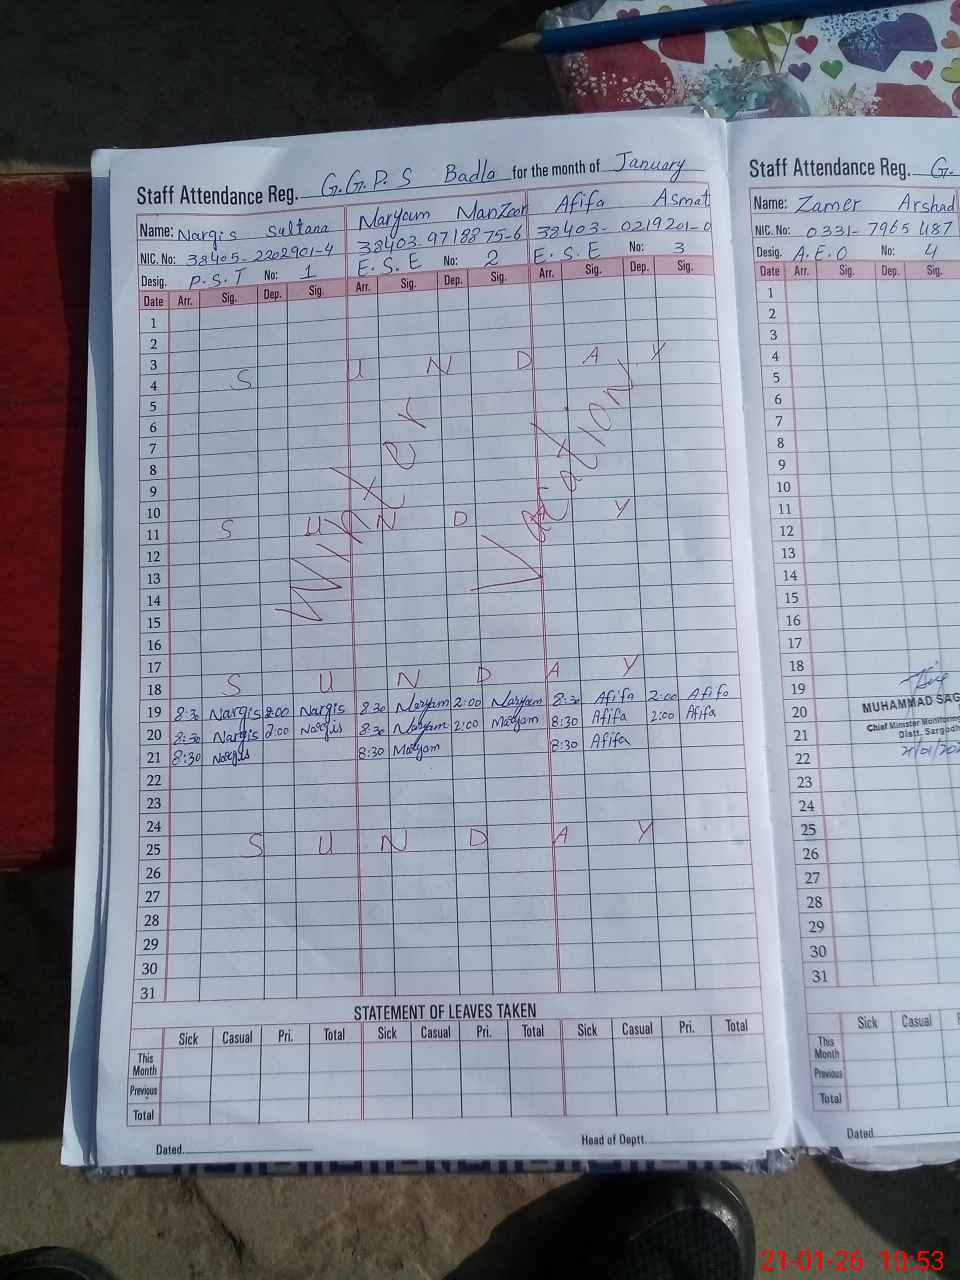 Staff Attendance Reg. G.G.P.S Badla for the month of January
Name: Nargis Sultana Maryam Manzoor Afifa Asmat
NIC. No: 38405-2202901-4 38403-9718875-6 38403-0219201-0
Desig. P.S.T No: 1 E.S.E No: 2 E.S.E No: 3
Date Arr. Sig. Dep. Sig. Arr. Sig. Dep. Sig. Arr. Sig. Dep. Sig.
1
2
3
4 SUNDAY
5
6
7
8
9
10
11 SUNDAY
12
13
14
15
16
17
18 SUNDAY
Winter Vacation
19 8:30 Nargis 2:00 Nargis 8:30 Maryam 2:00 Maryam 8:30 Afifa 2:00 Afifa
20 8:30 Nargis 2:00 Nargis 8:30 Maryam 2:00 Maryam 8:30 Afifa 2:00 Afifa
21 8:30 Nargis 8:30 Maryam 8:30 Afifa
22
23
24
25 SUNDAY
26
27
28
29
30
31
STATEMENT OF LEAVES TAKEN
Sick Casual Pri. Total Sick Casual Pri. Total Sick Casual Pri. Total
This Month
Previous
Total
Dated. Head of Deptt.
Staff Attendance Reg. G.
Name: Zamer Arshad
NIC. No: 0331-7965487
Desig. A.E.O No: 4
Date Arr. Sig. Dep. Sig.
1
2
3
4
5
6
7
8
9
10
11
12
13
14
15
16
17
18
19
20
21
22
23
24
25
26
27
28
29
30
31
MUHAMMAD SAG
Chief Minister Monitoring
Distt. Sargodh
21/01/202
Sick Casual
This Month
Previous
Total
Dated
21-01-26 10:53